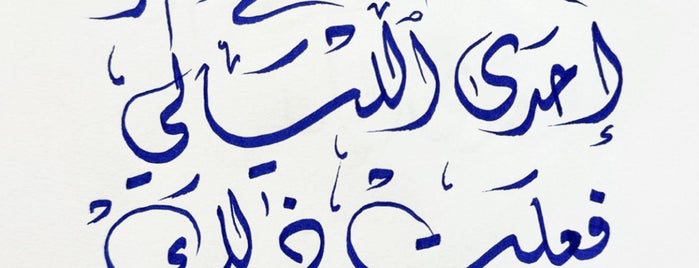 إحدى الليالي
فعلت ذلك